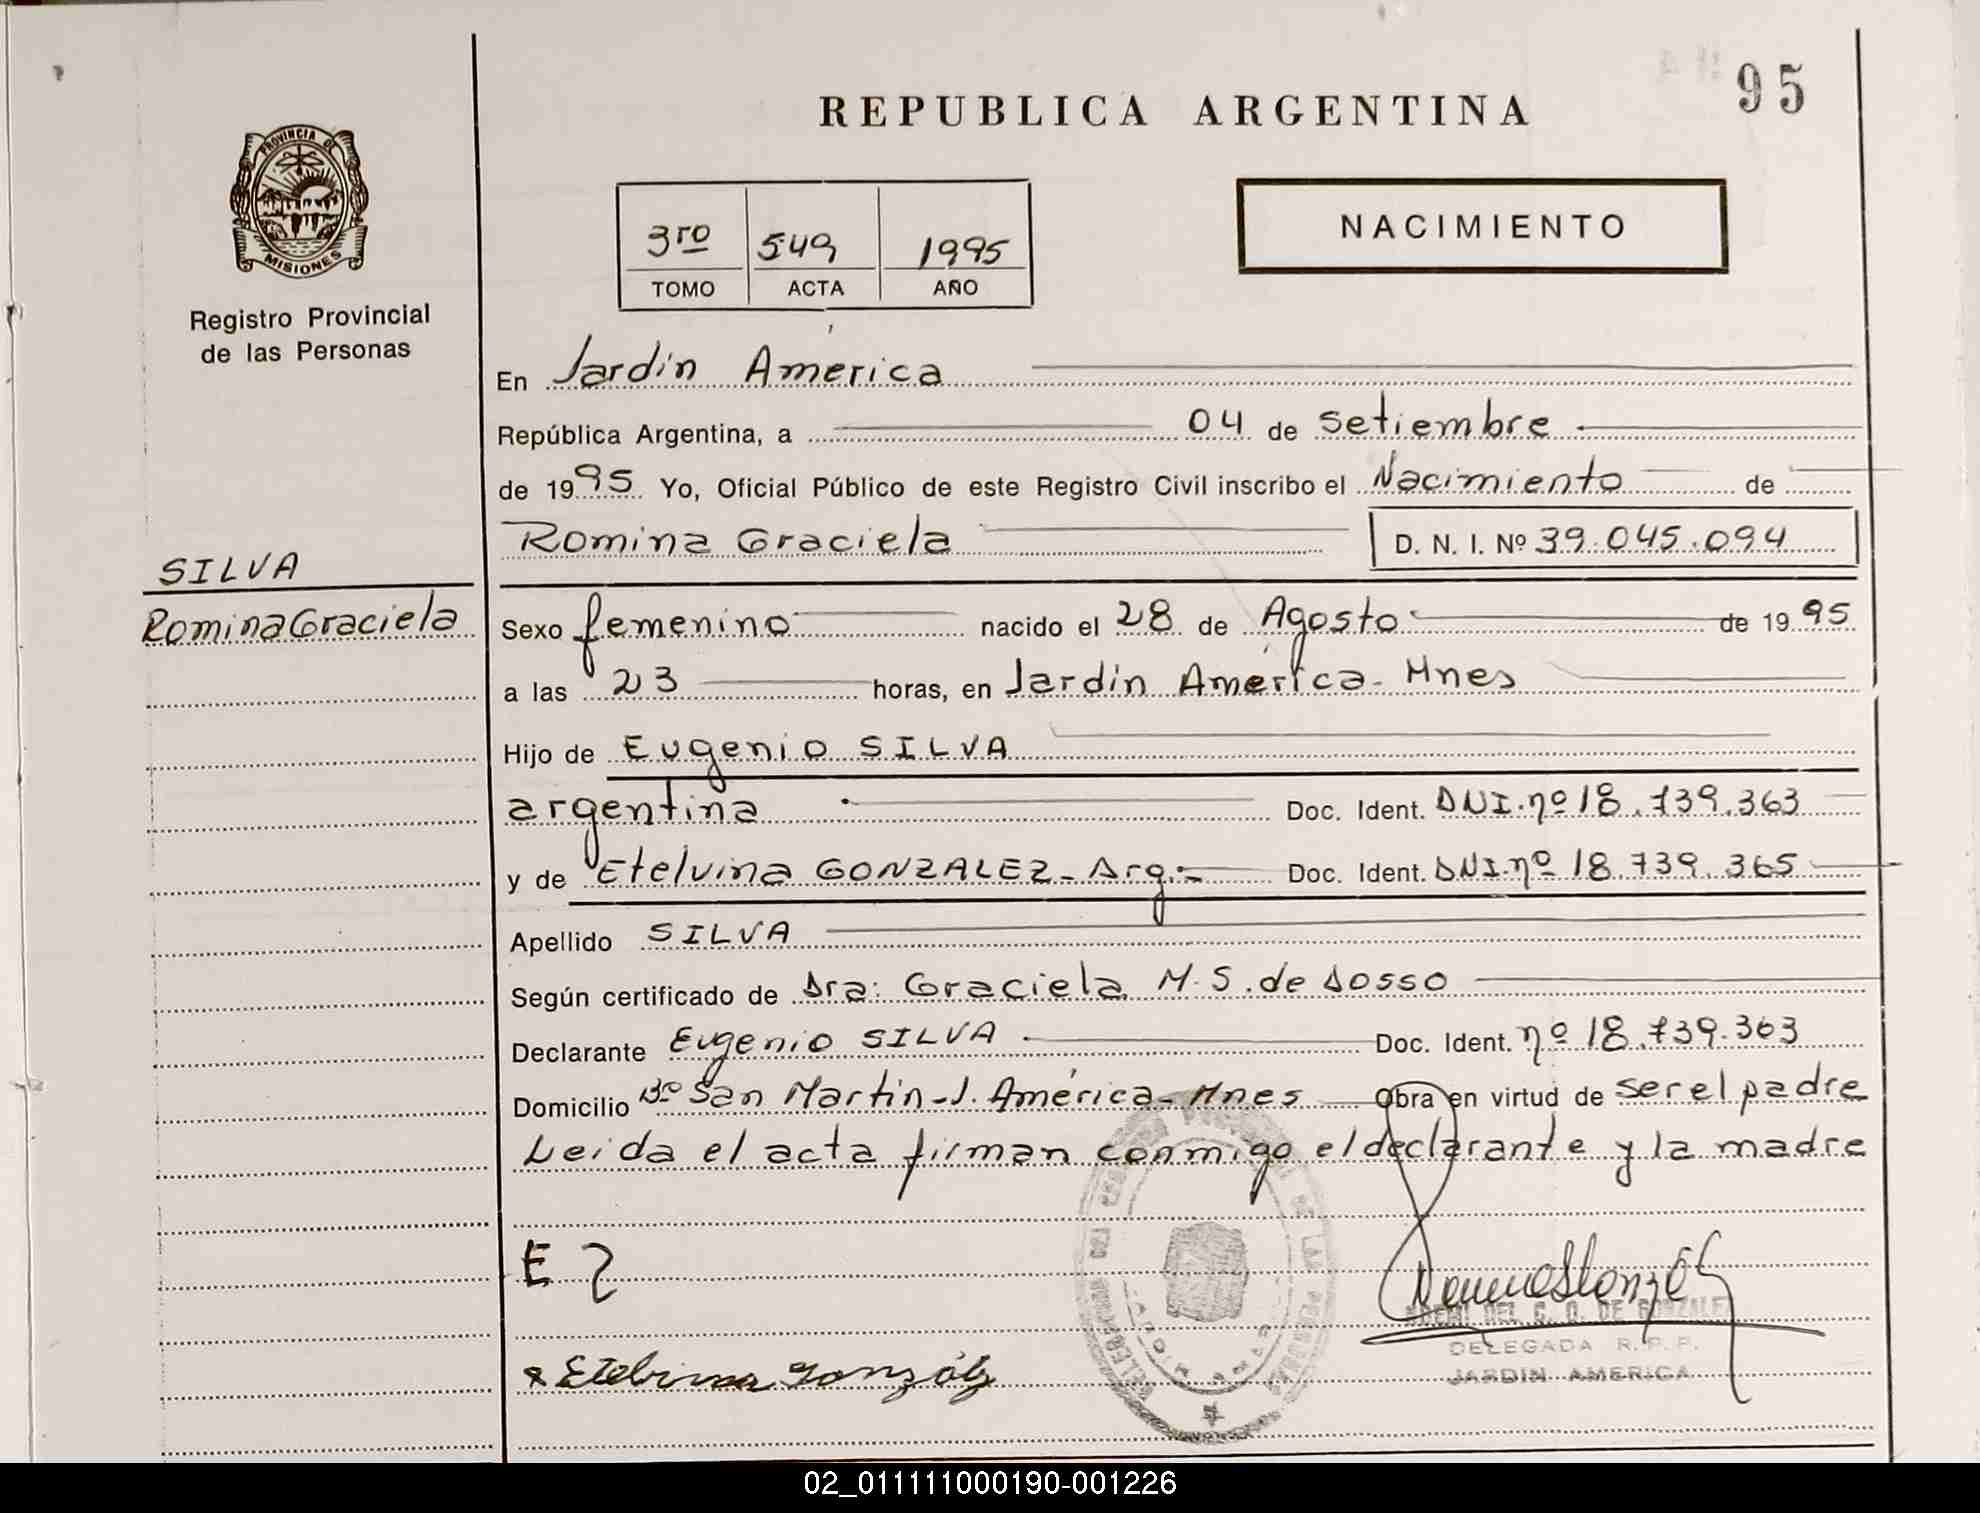 95
REPUBLICA ARGENTINA
PROVINCIA DE
MISIONES
Registro Provincial
de las Personas
3ro 549 1995
TOMO ACTA AÑO
NACIMIENTO
En Jardín América
República Argentina, a 04 de Setiembre
de 1995 Yo, Oficial Público de este Registro Civil inscribo el Nacimiento de
Romina Graciela D. N. I. Nº 39.045.094
SILVA
Romina Graciela
Sexo femenino nacido el 28 de Agosto de 1995
a las 23 horas, en Jardín América - Mnes
Hijo de Eugenio SILVA
argentina Doc. Ident. DNI. nº 18.739.363
y de Etelvina GONZALEZ - Arg.- Doc. Ident. DNI. nº 18.739.365
Apellido SILVA
Según certificado de Dra: Graciela M. S. de Dosso
Declarante Eugenio SILVA Doc. Ident. nº 18.739.363
Domicilio Bº San Martin - J. América - Mnes Obra en virtud de ser el padre
Leida el acta firman conmigo el declarante y la madre
E
Etelvina González
NOEMI DEL C. O. DE GONZALEZ
DELEGADA R.P.P.
JARDIN AMERICA
02_011111000190-001226